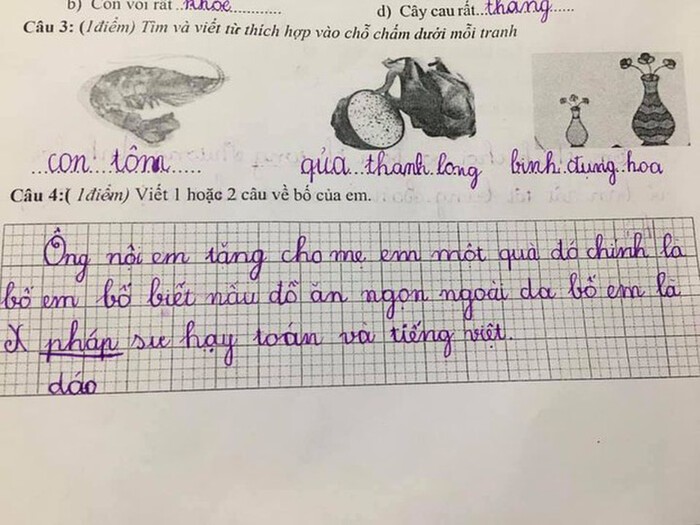 b) Con voi rất..khỏe............ d) Cây cau rất...thẳng......
Câu 3: (1điểm) Tìm và viết từ thích hợp vào chỗ chấm dưới mỗi tranh
...con...tôm...... qủa...thanh.long bình.đựng.hoa
Câu 4:( 1điểm) Viết 1 hoặc 2 câu về bố của em.
Ông nội em tăng cho mẹ em một quà đó chính là
bố em bố biết nấu đồ ăn ngọn ngoài da bố em là
X pháp sư hạy toán và tiếng việt.
dáo